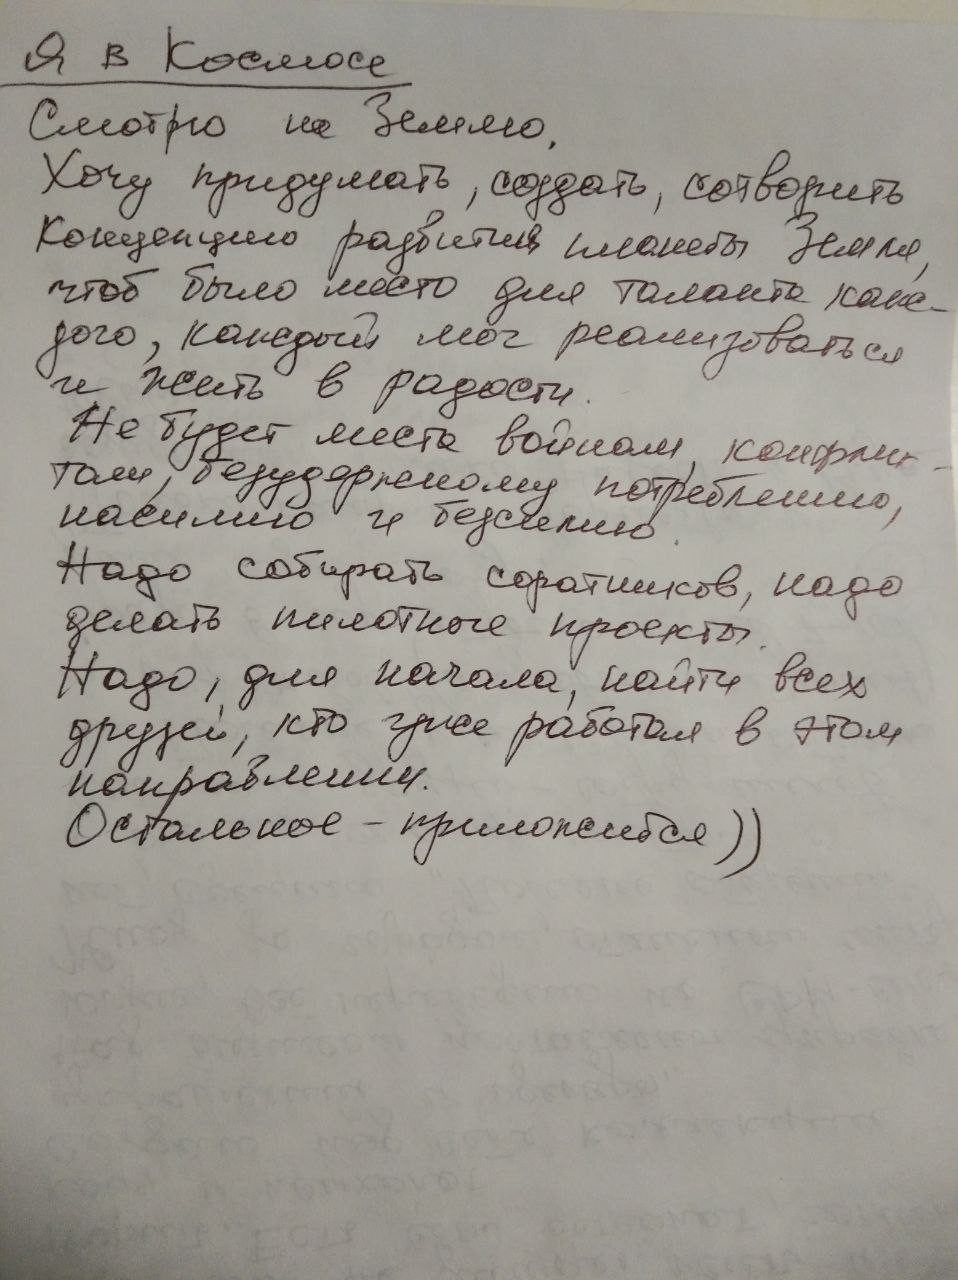 Я в Космосе
Смотрю на Землю,
Хочу придумать, создать, сотворить
концепцию развития планеты Земля,
чтоб было место для таланта каж-
дого, каждый мог реализоваться
и жить в радости.
Не будет места войнам, конфлик-
там, безудержному потреблению,
насилию и безсилию.
Надо собирать соратников, надо
делать пилотные проекты.
Надо, для начала, найти всех
друзей, кто уже работал в этом
направлении.
Остальное - приложится))